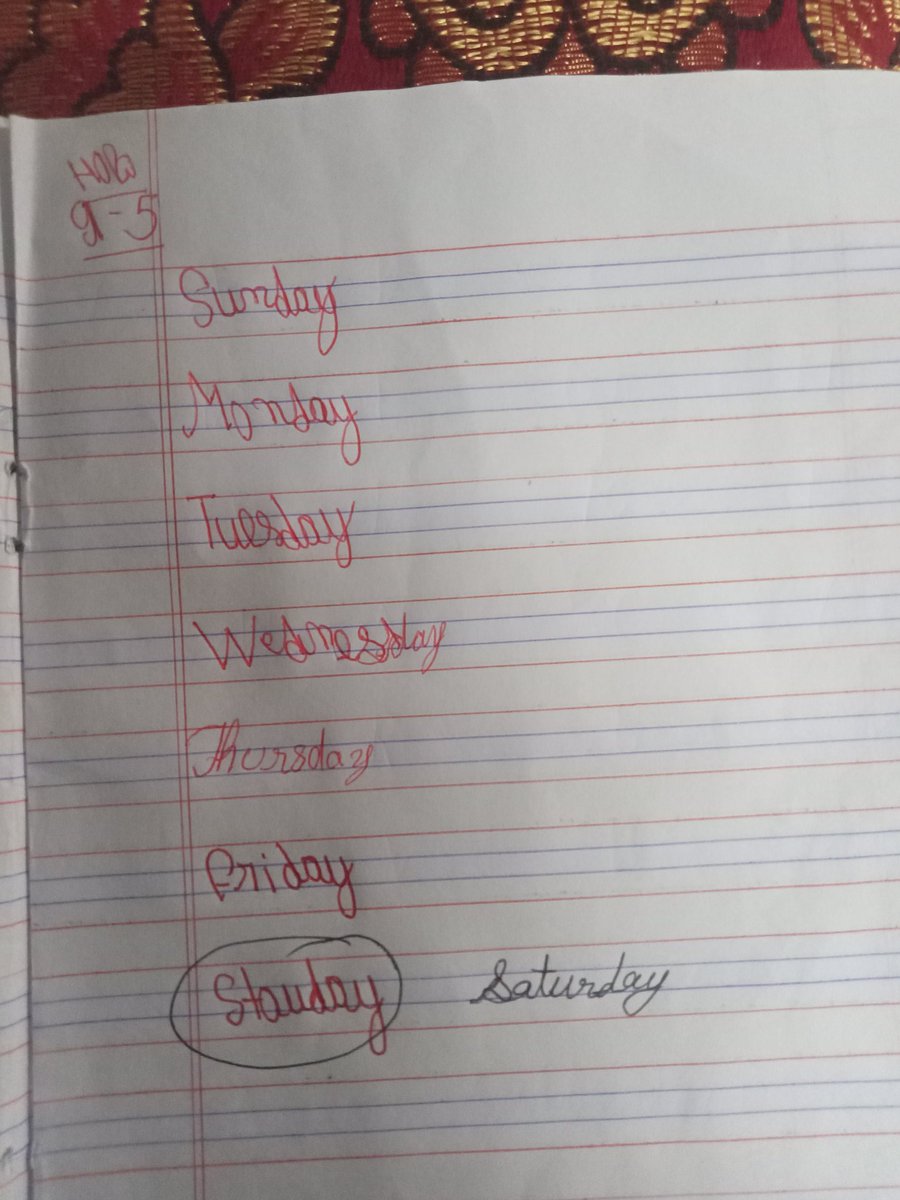 H.W
9-5
Sunday
Monday
Tuesday
Wednesday
Thursday
Friday
Stauday Saturday